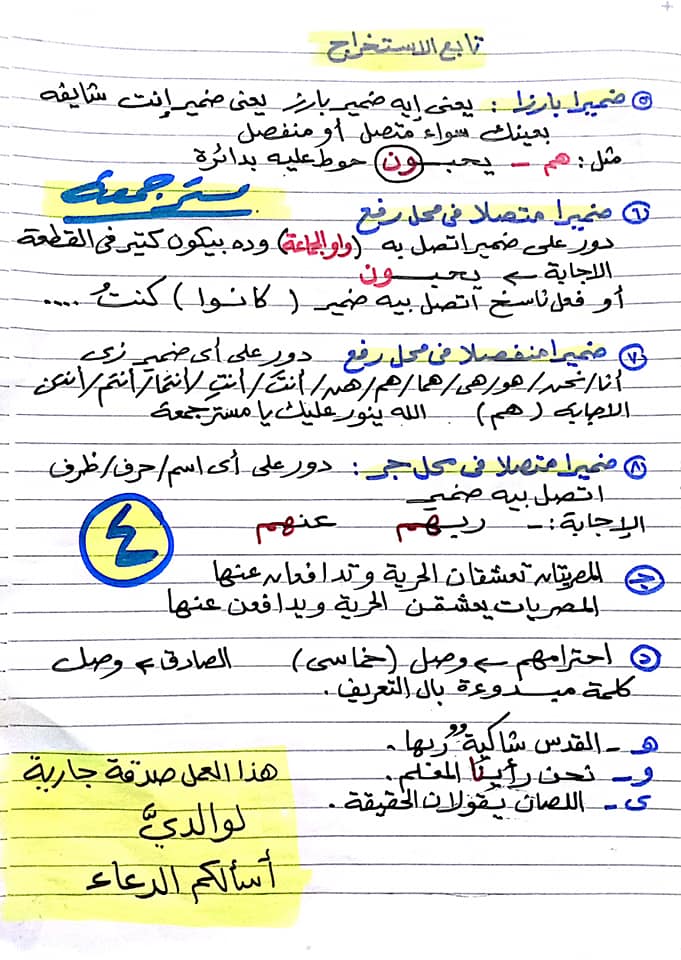 تابع الاستخراج
٥ ضميرا بارزا : يعنى إيه ضمير بارز يعنى ضمير إنت شايفه
بعينك سواء متصل أو منفصل
مثل : هم - يحبـــون حوط عليه بدائرة
مستر جمعه
٦ ضميرا متصلا فى محل رفع
دور على ضمير اتصل به (واو الجماعة) وده بيكون كتير فى القطعة
الاجابة ← يحبـــون
أو فعل ناسخ اتصل بيه ضمير ( كانوا ) كنتُ ....
٧ ضميرا منفصلا فى محل رفع دور على أى ضمير زى
أنا/نحن/هو/هى/هما/هم/هن/أنتَ/أنتِ/أنتما/أنتم/أنتن
الاجابه (هم) الله ينور عليك يا مستر جمعه
٨ ضميرا متصلا فى محل جر : دور على أى اسم/حرف/ظرف
اتصل بيه ضمير
الإجابة :- ربهم عنهم
٤
جـ المصريتان تعشقان الحرية وتدافعان عنها
المصريات يعشقن الحرية ويدافعن عنها
د احترامهم ← وصل (خماسى) الصادق ← وصل
كلمة مبدوءة بال التعريف .
هـ - القدس شاكية ربها .
و - نحن رأينا المعلم .
ى - اللصان يقولان الحقيقة .
هذا العمل صدقة جارية
لوالديَّ
أسألكم الدعاء